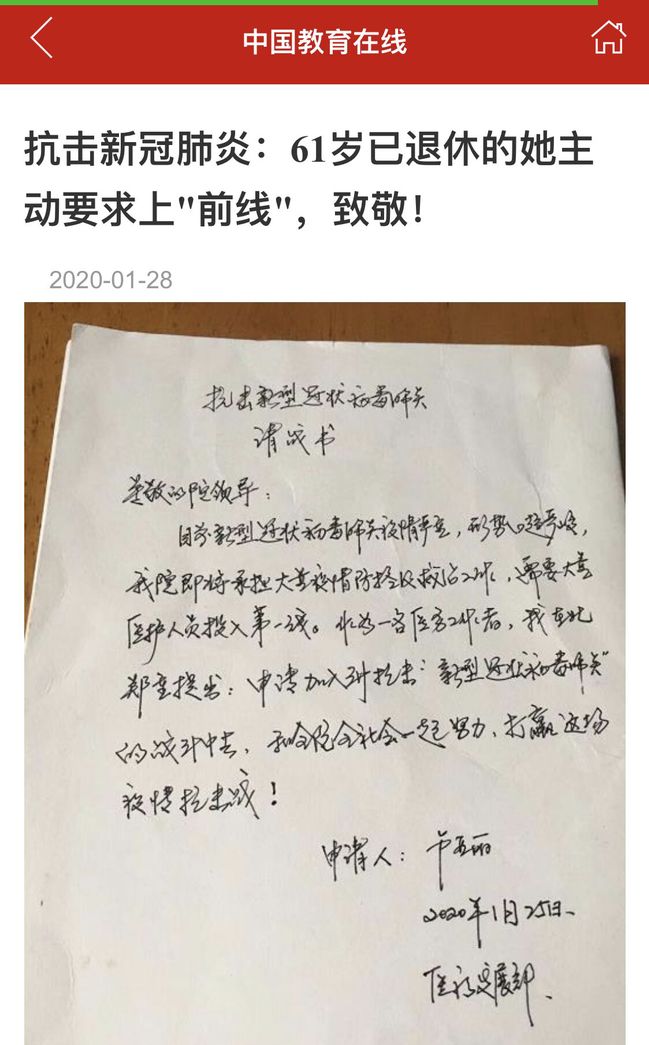 中国教育在线
抗击新冠肺炎：61岁已退休的她主
动要求上"前线"，致敬！
2020-01-28
抗击新型冠状病毒肺炎
请战书
尊敬的院领导：
目前新型冠状病毒肺炎疫情严重，形势趋严峻，
我院即将承担大量疫情防控及救治工作，需要大量
医护人员投入第一线。作为一名医务工作者，我在此
郑重提出：申请加入到抗击“新型冠状病毒肺炎”
的战斗中去，和全院全社会一起努力、打赢这场
疫情抗击战！
申请人：
2020年1月25日、
医疗发展部、